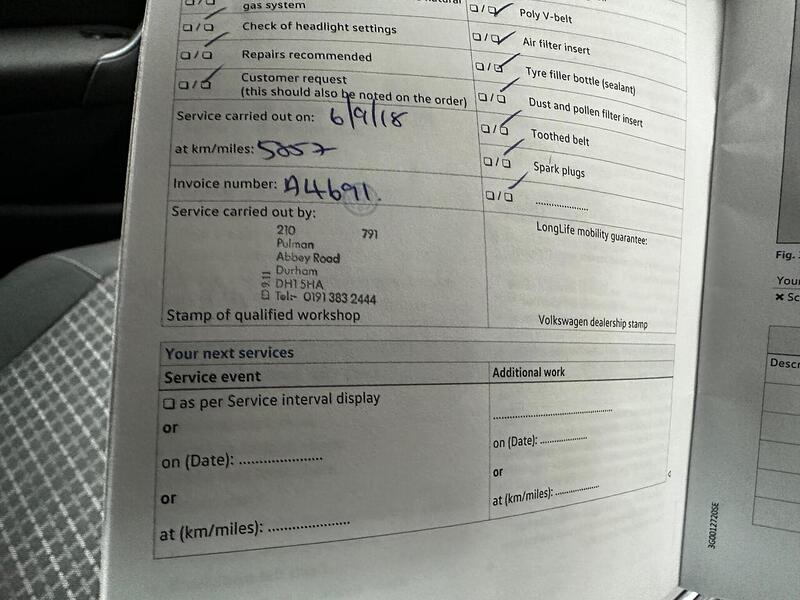 gas system
Check of headlight settings
Repairs recommended
Customer request
(this should also be noted on the order)
Service carried out on: 6/9/18
at km/miles: 5857
Invoice number: A4691.
Service carried out by:
210 791
Pulman
Abbey Road
Durham
DH1 5HA
Tel:- 0191 383 2444
Stamp of qualified workshop
Poly V-belt
Air filter insert
Tyre filler bottle (sealant)
Dust and pollen filter insert
Toothed belt
Spark plugs
....................
LongLife mobility guarantee:
Volkswagen dealership stamp
Your next services
Service event
as per Service interval display
or
on (Date): ....................
or
at (km/miles): ....................
Additional work
..............................
on (Date): ................
or
at (km/miles): ...............
3G0012720SE
Fig.
Your
Sc
Descr